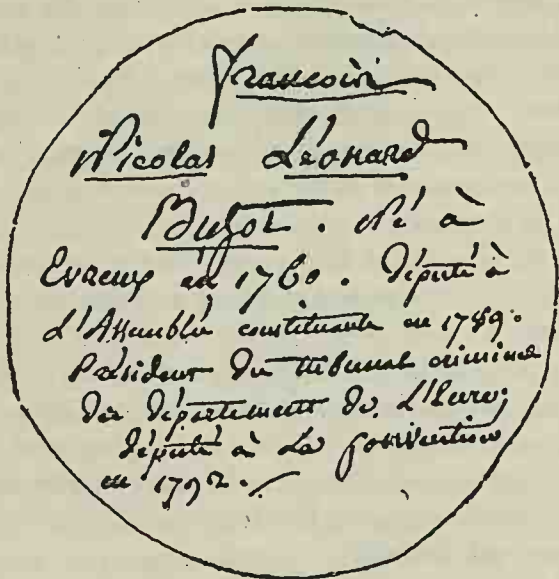 François
Nicolas Léonard
Buzot. Né à
Evreux en 1760. Député à
L'Assemblée constituante en 1789.
Président du tribunal criminel
du département de L'Eure;
député à La Convention
en 1792.